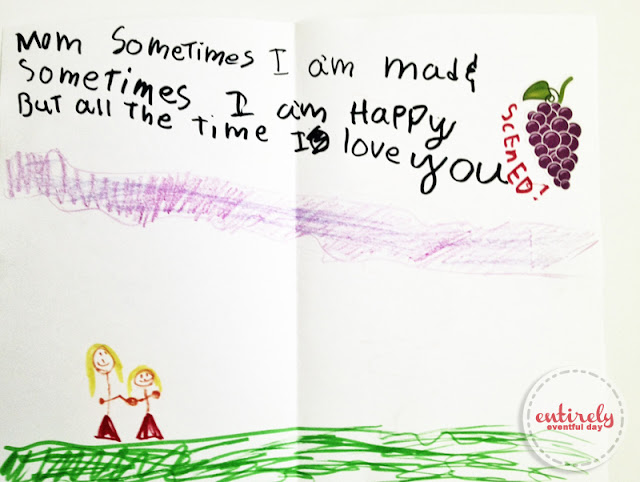 Mom Sometimes I am mad &
Sometimes I am Happy
But all The time I love you
ScEnED!
entirely
eventful day